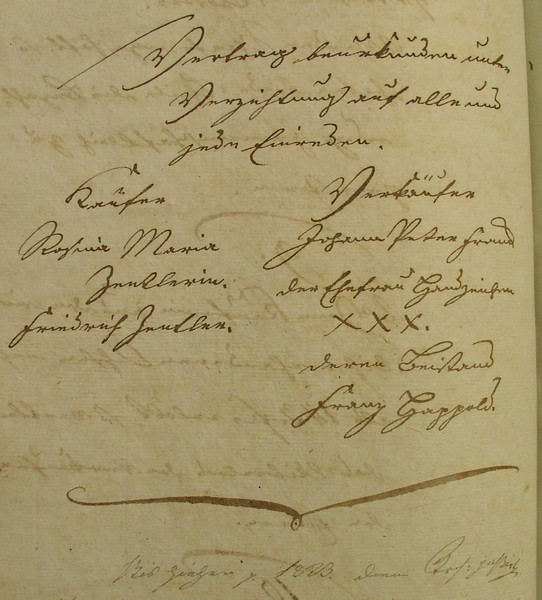 Vertrag beurkunden unter
Verzichtung auf alle und
jede Einreden.
Käufer
Rosina Maria
Zentlerin.
Friedrich Zentler.
Verkäufer
Johann Peter Frand
der Ehefrau Handzeichen
X X X.
deren Beistand
Franz Happold.
1823.